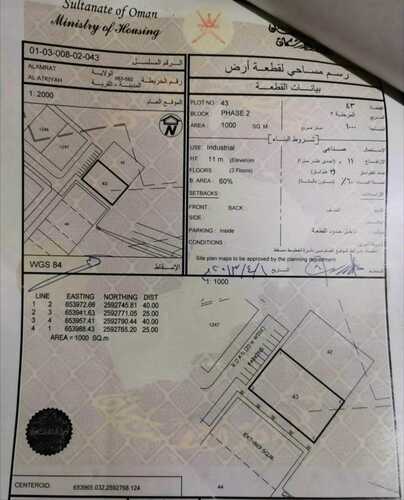 Sultanate of Oman
Ministry of Housing
رسم مساحي لقطعة أرض
01-03-008-02-043
الرقم المسلسل
بيانات القطعة
ALAMRAT
الولاية
AL ATRIYAH
المدينة - القرية
رقم الخريطة
1: 2000
الموقع العام
PLOT NO: 43
٤٣
BLOCK PHASE 2
المرحلة ٢
AREA : 1000 SQ.M
١٠٠٠
شروط البناء
USE: Industrial
صناعي
HT 11 m (Elevation
١١
FLOORS (2 Floors)
B. AREA 60%
٪٦٠
SETBACKS:
FRONT: BACK
SIDE:
PARKING: Inside
داخل حدود القطعة
CONDITIONS
Site plan maps to be approved by the planning department
1246
1247
42
43
WGS 84
الإسقاط
التاريخ
1: 1000
LINE EASTING NORTHING DIST
1 2 653972.66 2592745.81 40.00
2 3 653941.63 2592771.05 25.00
3 4 653957.41 2592790.44 40.00
4 1 653988.43 2592765.20 25.00
AREA = 1000 SQ.m
1247
PARKING
42
43
44
CENTEROID: 653965.032,2592768.124